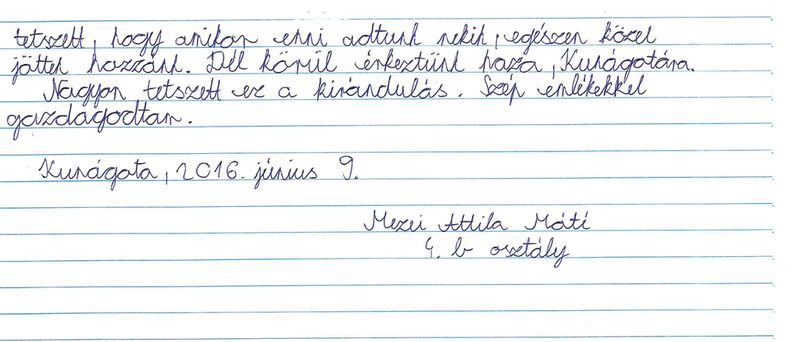 tetszett, hogy amikor enni adtunk nekik, egészen közel
jöttek hozzánk. Dél körül érkeztünk haza, Kunágotára.
Nagyon tetszett ez a kirándulás. Szép emlékekkel
gazdagodtam.
Kunágota, 2016. június 9.
Mezei Attila Máté
4. b osztály